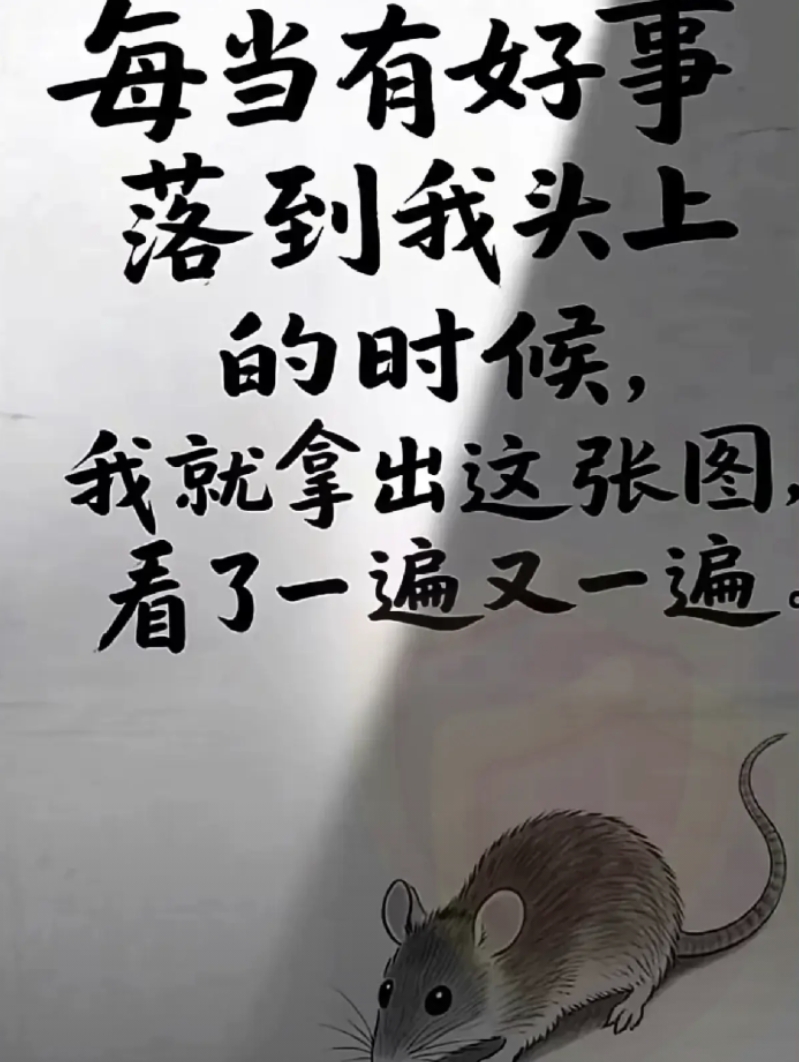 每当有好事
落到我头上
的时候,
我就拿出这张图,
看了一遍又一遍。